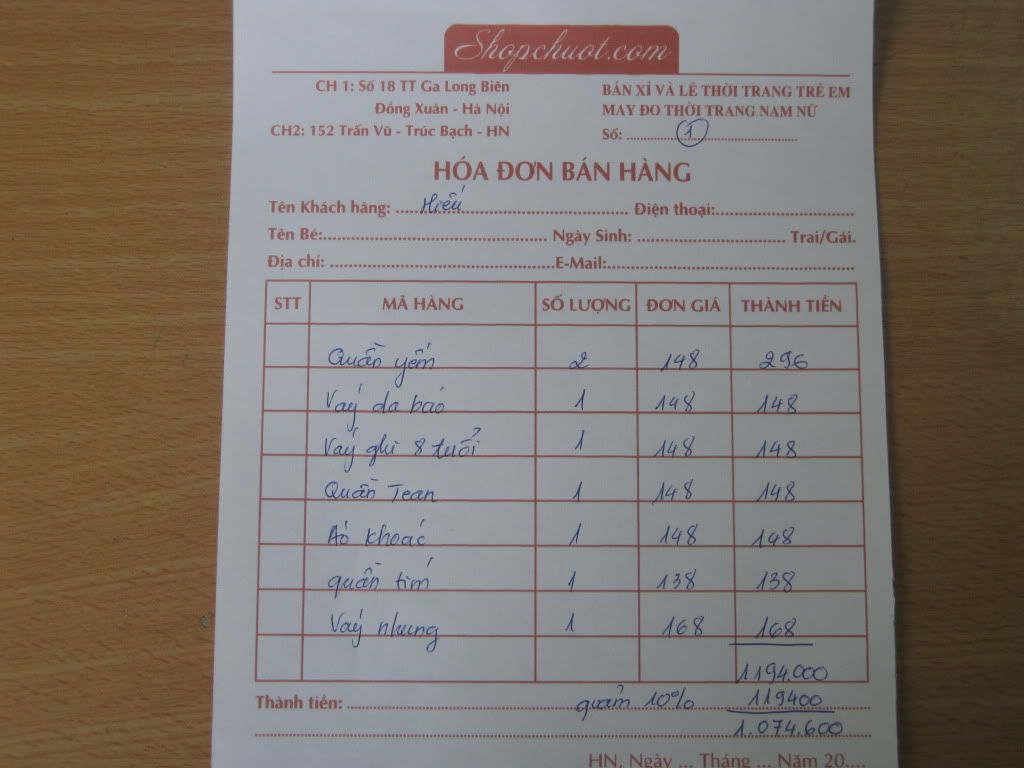 Shopchuot.com
CH 1: Số 18 TT Ga Long Biên
Đồng Xuân - Hà Nội
CH2: 152 Trấn Vũ - Trúc Bạch - HN
BÁN XỈ VÀ LẺ THỜI TRANG TRẺ EM
MAY ĐO THỜI TRANG NAM NỮ
Số: 1
HÓA ĐƠN BÁN HÀNG
Tên Khách hàng: Hiếu Điện thoại:
Tên Bé: Ngày Sinh: Trai/Gái.
Địa chỉ: E-Mail:
STT MÃ HÀNG SỐ LƯỢNG ĐƠN GIÁ THÀNH TIỀN
Quần yếm 2 148 296
Váy da báo 1 148 148
Váy ghi 8 tuổi 1 148 148
Quần Jean 1 148 148
Áo khoác 1 148 148
quần tím 1 138 138
Váy nhung 1 168 168
1194.000
Thành tiền: 10% 119400
1.074.600
HN, Ngày ... Tháng ... Năm 20....